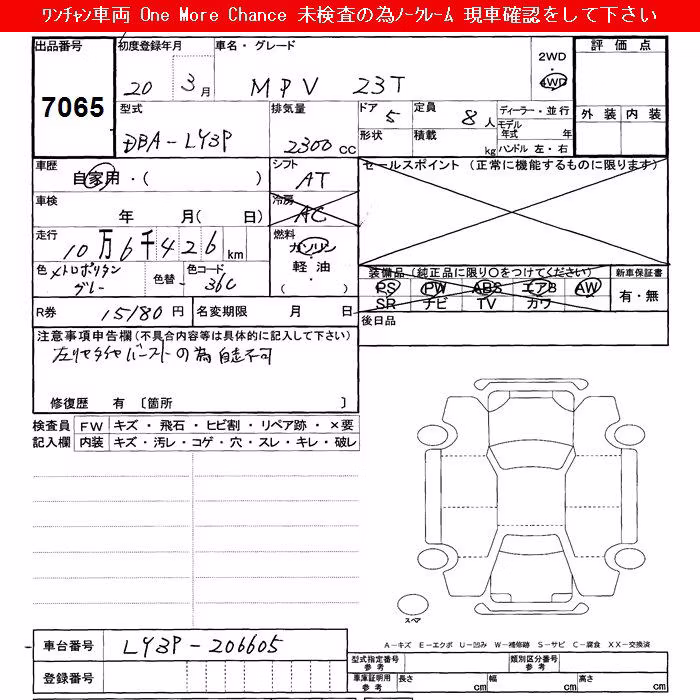 ﾜﾝﾁｬﾝ車両 One More Chance 未検査の為ﾉｰｸﾚｰﾑ 現車確認をして下さい
出品番号 初度登録年月 車名・グレード 2WD 評価点
7065 20 3月 MPV 23T 4WD
型式 排気量 ドア 定員 ディーラー・並行 外装 内装
DBA-LY3P 2300cc 5 8人 モデル年式 年
形状 積載 kg ハンドル 左・右
車歴 自家用・( ) シフト AT セールスポイント (正常に機能するものに限ります)
車検 年 月( 日) 冷房 AC
走行 10万6千426km 燃料 ガソリン・軽油・( )
色 メトロポリタングレー 色替 色コード 36C
装備品(純正品に限り〇をつけてください) 新車保証書
PS PW ABS エアB AW 有・無
SR ナビ TV カワ
R券 15180円 名変期限 月 日 後日品
注意事項申告欄(不具合内容等は具体的に記入して下さい)
左リヤタイヤバーストの為自走不可
修復歴 有 〔箇所 〕
検査員 FW キズ・飛石・ヒビ割・リペア跡・×要
記入欄 内装 キズ・汚レ・コゲ・穴・スレ・キレ・破レ
スペア
車台番号 LY3P-206605
A－キズ E－エクボ U－凹み W－補修跡 S－サビ C－腐食 XX－交換済
型式指定番号参考 類別区分番号参考
登録番号 車庫証明用参考 長さ cm 幅 cm 高さ cm